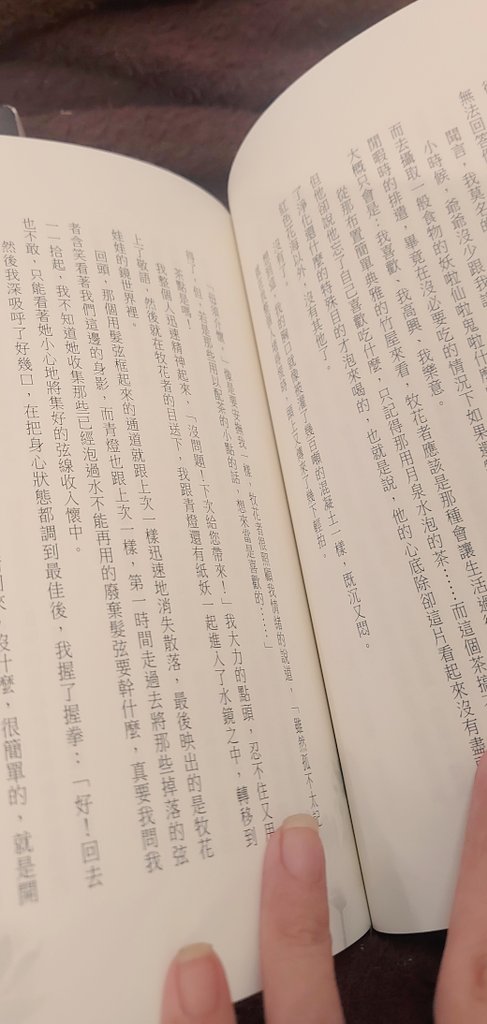 無法回答
聞言，我莫名的
小時候，爺爺沒少跟我說
而去攝取一般食物的妖啦仙啦鬼啦什麼
閒暇時的排遣，畢竟在沒必要吃的情況下如果還
大概只會是：我喜歡、我高興、我樂意。
從那布置簡單典雅的竹屋來看，牧花者應該是那種會讓生活過得
但他卻說他忘了自己喜歡吃什麼，只記得那用月泉水泡的茶……而這個茶
了淨化還什麼的特殊目的才泡來喝的，也就是說，他的心底除卻這片看起來沒有盡
紅色花海以外，沒有其他了。
沒有了。
我的胸口就像被灌了幾百噸的混凝土一樣，既沉又悶。
頭上又傳來了幾下輕拍。
一樣，牧花者很照顧我情緒的說道，「雖然孤不太記
得了，但，若是那些用以配茶的小點的話，想來當是喜歡的……」
茶點是嗎！
我整個人迅速精神起來，「沒問題！下次給您帶來！」我大力的點頭，忍不住又用
上了敬語，然後就在牧花者的目送下，我跟青燈還有紙妖一起進入了水鏡之中，轉移到
娃娃的鏡世界裡。
回頭，那個用髮弦框起來的通道就跟上次一樣迅速地消失散落，最後映出的是牧花
者含笑看著我們這邊的身影，而青燈也跟上次一樣，第一時間走過去將那些掉落的弦
一一拾起，我不知道她收集那些已經泡過水不能再用的廢棄髮弦要幹什麼，真要我問我
也不敢，只能看著她小心地將集好的弦線收入懷中。
然後我深吸呼了好幾口，在把身心狀態都調到最佳後，我握了握拳：「好！回去
沒什麼，很簡單的，就是開